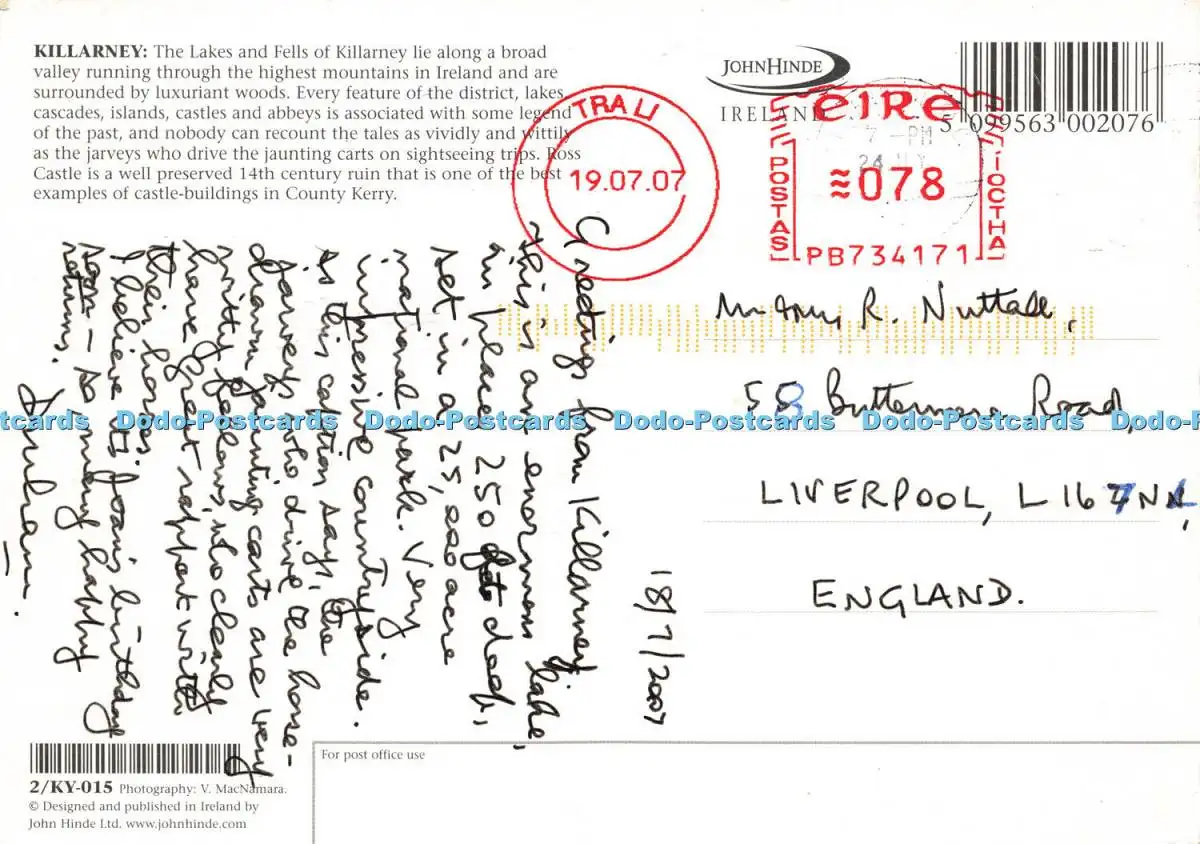 KILLARNEY: The Lakes and Fells of Killarney lie along a broad
valley running through the highest mountains in Ireland and are
surrounded by luxuriant woods. Every feature of the district, lakes,
cascades, islands, castles and abbeys is associated with some legend
of the past, and nobody can recount the tales as vividly and wittily
as the jarveys who drive the jaunting carts on sightseeing trips. Ross
Castle is a well preserved 14th century ruin that is one of the best
examples of castle-buildings in County Kerry.
JOHNHINDE
IRELAND
5 099563 002076
TRA LI
19.07.07
éIRe
POSTAS
≋078
ÍOCTHA
PB734171
7 - PM
24
18/7/2007
Greetings from Killarney
this is an enormous lake,
in places 250 ft deep,
set in a 25,000 acre
national park. Very
impressive countryside.
As this caption says, the
jarveys who drive the horse-
drawn jaunting carts are very
witty fellows, who clearly
have great rapport with
their horses.
I believe it's Joan's birthday
soon – so many happy
returns.
Graham.
R. Nuttall,
58 Buttermere Road,
LIVERPOOL, L16
ENGLAND.
Dodo-Postcards Dodo-Postcards Dodo-Postcards Dodo-Postcards Dodo-Postcards
For post office use
2/KY-015 Photography: V. MacNamara.
© Designed and published in Ireland by
John Hinde Ltd. www.johnhinde.com